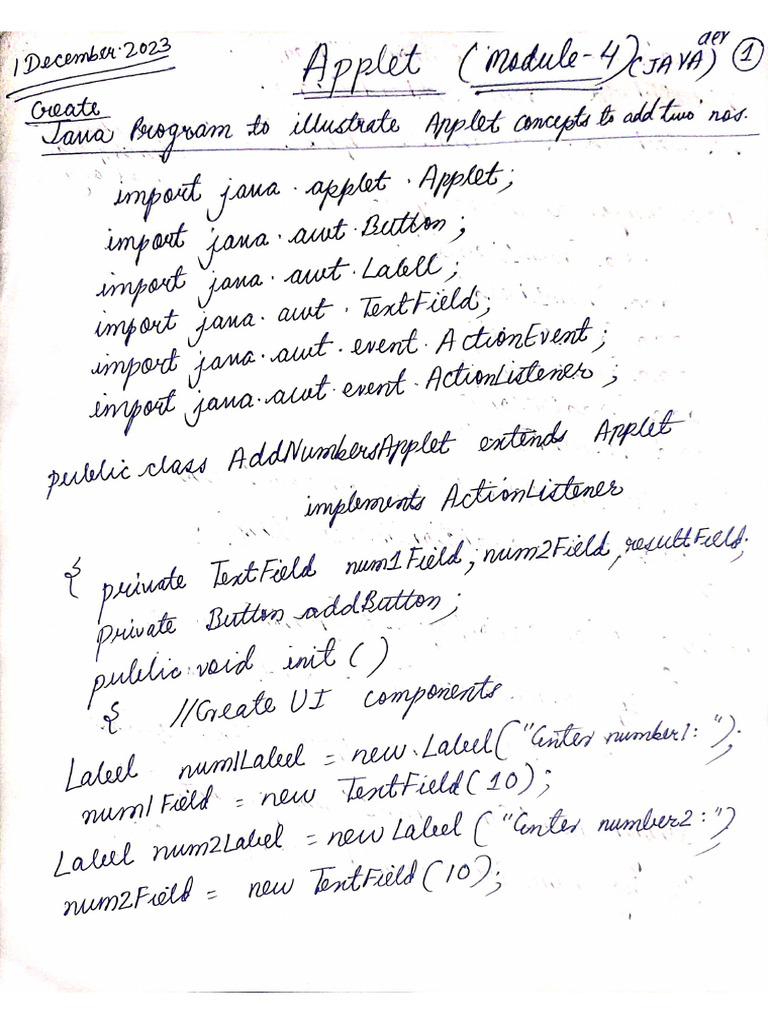 1 December 2023
Applet (Module-4) (JAVA) 1
Create
Java Program to illustrate Applet concepts to add two nos.
import java.applet.Applet;
import java.awt.Button;
import java.awt.Label;
import java.awt.TextField;
import java.awt.event.ActionEvent;
import java.awt.event.ActionListener;
public class AddNumbersApplet extends Applet
implements ActionListener
{ private TextField num1Field, num2Field, resultField;
private Button addButton;
public void init()
{ //Create UI components
Label num1Label = new Label("Enter number1: ");
num1Field = new TextField(10);
Label num2Label = new Label("Enter number2:")
num2Field = new TextField(10);